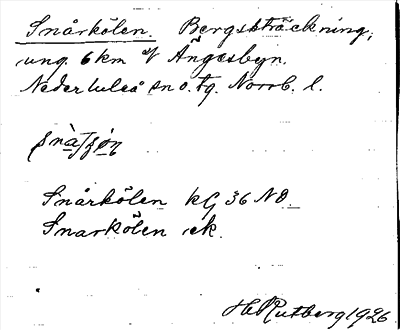 Snårkölen. Bergsträckning,
ung. 6 km åV Ängesbyn.
Nederluleå sn o. tg. Norrb. l.
Snårkölen kG 36 NO.
Snarkölen ek.
H. Rutberg 1926